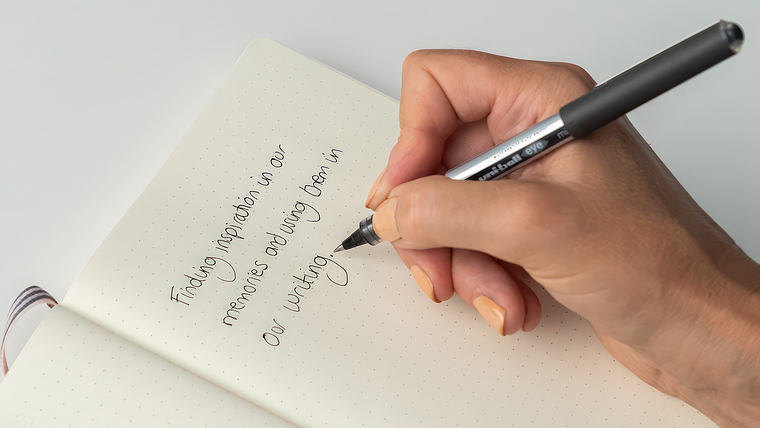 Finding inspiration in our
memories and using them in
our writing.
uni-ball eye